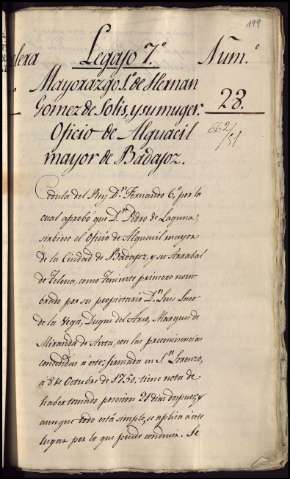 199
lera
Legajo 7.º Núm.º
Mayorazgo 1.º de Hernan
Gomez de Solis, y su muger. 28.
Oficio de Alguacil
mayor de Badajoz.
662/51
Cedula del Rey D.n Fernando 6.º por la
cual aprobó que D.n Pedro de Laguna,
sirbiese el Oficio de Alguacil mayor
de la Ciudad de Badajoz, y su Arrabal
de Telena, como teniente primero nom-
brado por su propietario D.n Luis Laso
de la Vega, Duque del Arco, Marques de
Miranda de Auta, con las preeminencias
concedidas a este; firmada en S.n Lorenzo,
a 8 de Octubre de 1750, tiene nota de
haber tomado posesion 21 dias despues, y
aunque todo está simple, se aplica a este
lugar por lo que puede conducir. Se